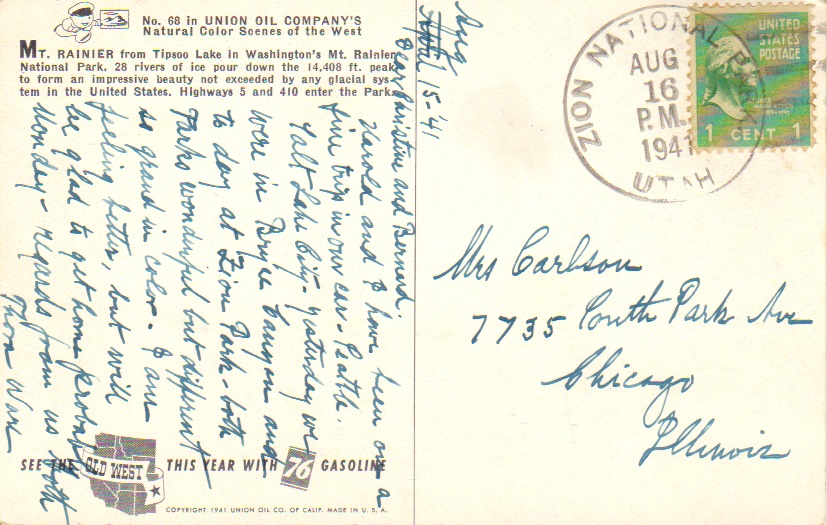 No. 68 in UNION OIL COMPANY'S
Natural Color Scenes of the West
MT. RAINIER from Tipsoo Lake in Washington's Mt. Rainier
National Park. 28 rivers of ice pour down the 14,408 ft. peak
to form an impressive beauty not exceeded by any glacial sys-
tem in the United States. Highways 5 and 410 enter the Park.
Aug
April 15-'41
Dear Christine and Bernard.
Harold and I have been on a
fine trip in our car - Seattle.
Salt Lake City - yesterday we
were in Bryce Canyon and
to day at Zion Park - both
Parks wonderful but different
so grand in color - I am
feeling better, but will
be glad to get home probably
Monday - regards from us both
Thora
SEE THE OLD WEST THIS YEAR WITH 76 GASOLINE
COPYRIGHT 1941 UNION OIL CO. OF CALIF. MADE IN U. S. A.
ZION NATIONAL PARK
AUG
16
P.M.
1941
UTAH
UNITED
STATES
POSTAGE
1 CENT 1
Mrs Carlson
7735 South Park Ave
Chicago
Illinois